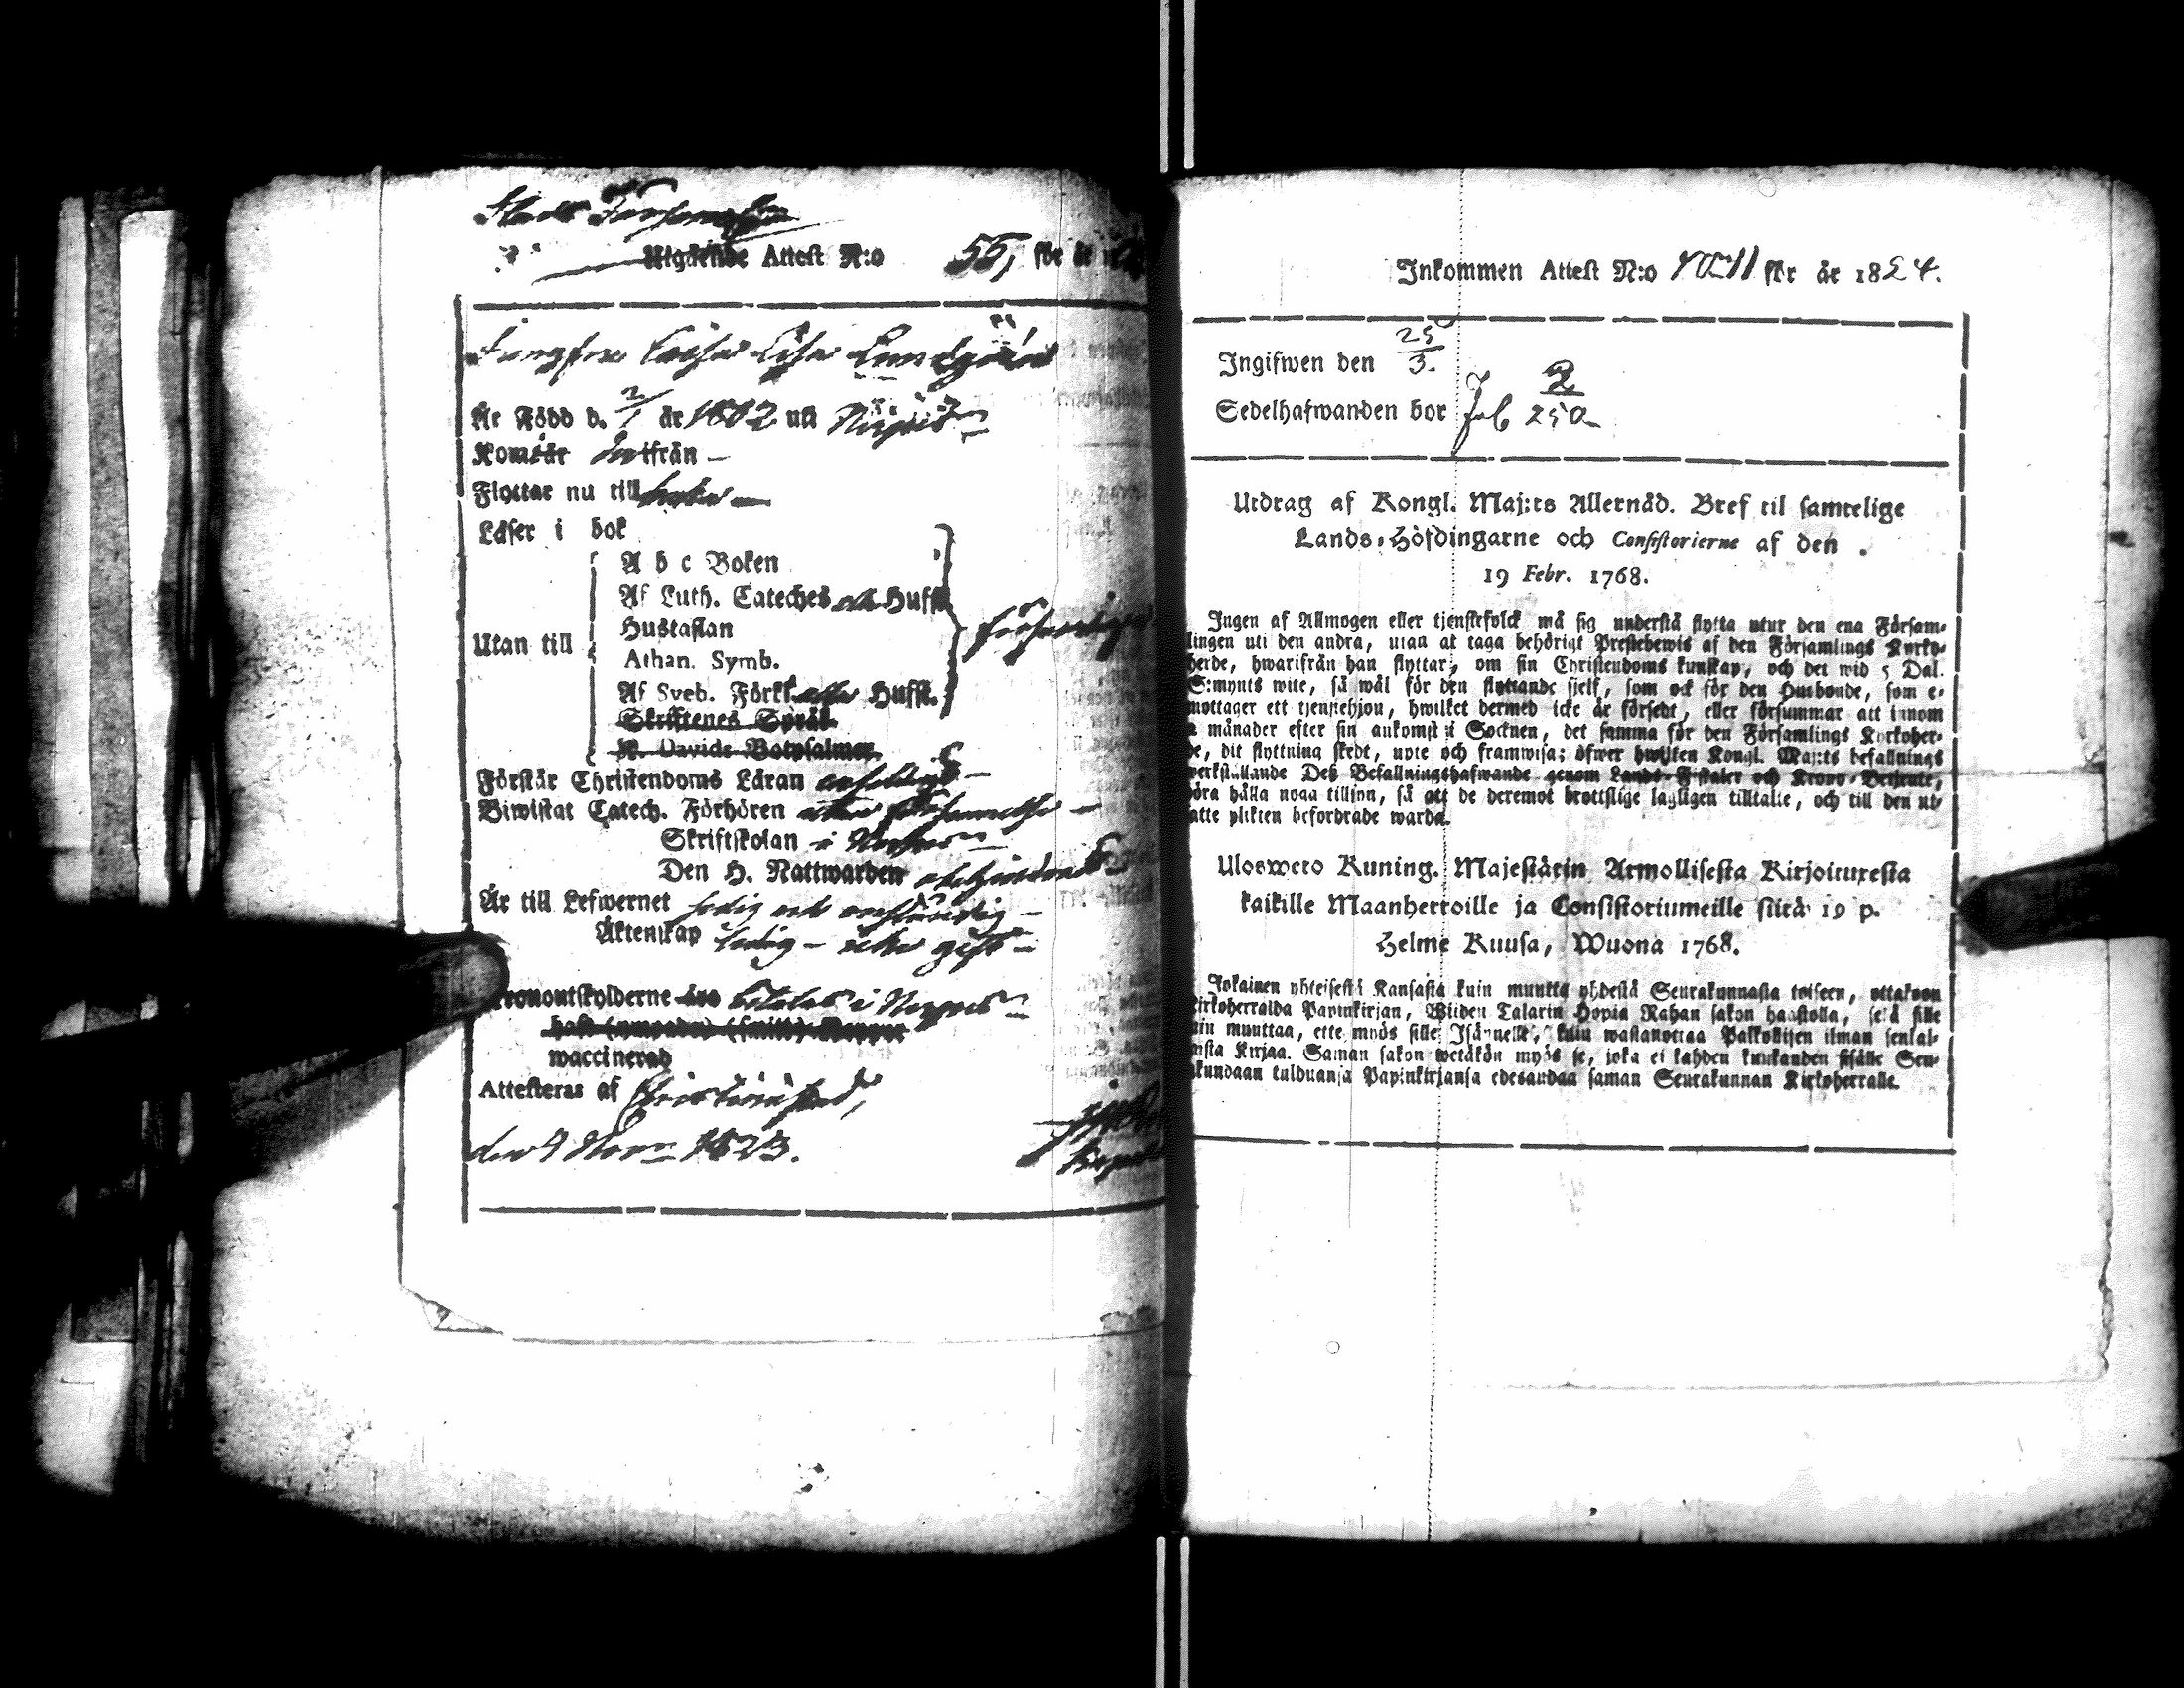 Stads Församling
Utgående Attest N:o 55, för år
Jungfru Cajsa Lisa Lundgrén
Är Född d. 2/1 år 1802 uti
Kom härifrån —
Flyttar nu till
Läser i bok
A b c Boken
Af Luth. Cateches och Hufst.
Hustaflan
Utan till
Athan. Symb.
Af Sveb. Förkl. eller Hufst.
Skriftenes Språk.
K. Davids Botpsalmer
Förstår Christendoms Läran enfaldigt —
Biwistat Catech. Förhören utan försummelse —
Skriftskolan i
Den H. Nattwarden
Är till Lefwernet sedig och anständig —
Äktenskap ledig — icke gift —
Kronoutskylderne äro betalas i
haft (ympade) (smitt) Koppor
waccinerad
Attesteras af Christinestad,
den 4 Nov. 1823.
Inkommen Attest N:o för år 1824.
Ingifwen den 25/3.
Sedelhafwanden bor 2 250
Utdrag af Kongl. Maj:ts Allernåd. Bref til samtelige
Lands-Höfdingarne och Consistorierne af den
19 Febr. 1768.
Ingen af Allmogen eller tjenstefolck må sig understå flytta utur den ena Försam-
lingen uti den andra, utan at taga behörigt Prestebewis af den Församlings Kyrko-
herde, hwarifrån han flyttar, om sin Christendoms kunskap, och det wid 5 Dal.
S:mynts wite, så wäl för den flyttande sjelf, som ock för den Husbonde, som e-
mottager ett tjenstehjon, hwilket dermed icke är försedt, eller försummar att innom
månader efter sin ankomst til Socknen, det samma för den Församlings Kyrkoher-
de, dit flyttning skedt, upte och framwisa; öfwer hwilken Kongl. Maj:ts befallnings
werkställande Deß Befallningshafwande genom Lands-Fiskaler och Krono-Betjente,
böra hålla noga tillsyn, så att de deremot brottslige lagligen tilltalte, och till den ut-
satte plikten befordrade warda.
Uloswero Kuning. Majestätin Armollisesta Kirjoituxesta
kaikille Maanherroille ja Consistoriumeille siitä 19 p.
Helme Kuusa, Wuona 1768.
Jokainen yhteisestä Kansasta kuin muutta yhdestä Seurakunnasta toiseen, ottakoon
Kirkoherralda Papinkirjan, Wiiden Talarin Hopia Rahan sakon haastolla, sekä sille
kuin muuttaa, ette myös sille Isännelle, kuin wastanottaa Palkollisen ilman senlal-
nsta Kirjaa. Saman sakon wetäkön myös se, joka ei kahden kuukauden sisälle Seu-
rakundaan tulduansa Papinkirjansa edesandaa saman Seurakunnan Kirkoherralle.